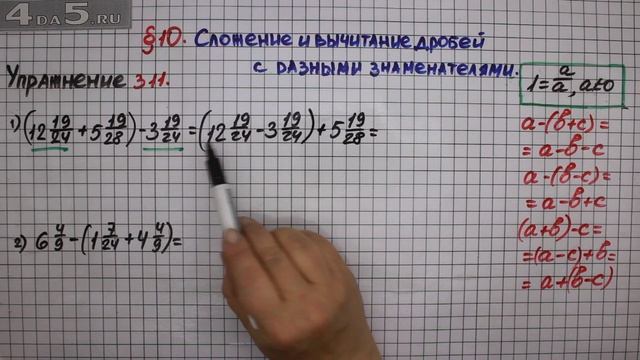 4DA5.RU
§10. Сложение и вычитание дробей
с разными знаменателями.
Упражнение 311.
1 = a/a, a≠0
1) (12 19/24 + 5 19/28) - 3 19/24 = (12 19/24 - 3 19/24) + 5 19/28 =
2) 6 4/9 - (1 7/24 + 4 4/9) =
a-(b+c)=
= a-b-c
a-(b-c)=
= a-b+c
(a+b)-c=
=(a-c)+b=
= a+(b-c)